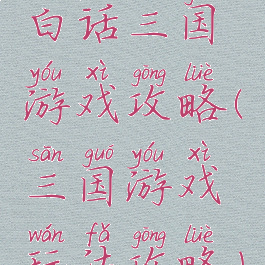 白话三国
yóu xì gòng lüè
游戏攻略(
sān guō yóu xì
三国游戏
wán fǎ gòng lüè
玩法攻略)